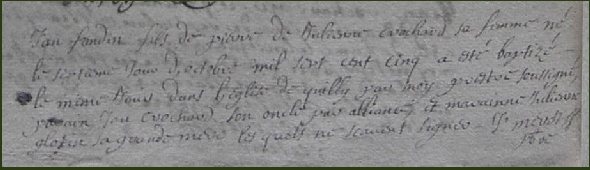 Jan fils de pierre de Julienne crochard sa femme né
le septieme Jour d'octobre mil sept cent cinq a été baptizé
le même Jour dans l'église de quilly par moy prestre soussigné
parain Jan crochard son oncle par alliance et Julienne
sa grande mere les quels ne scavent signer